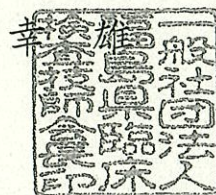 幸雄
一般社団法人
県臨床
検査技師会長印